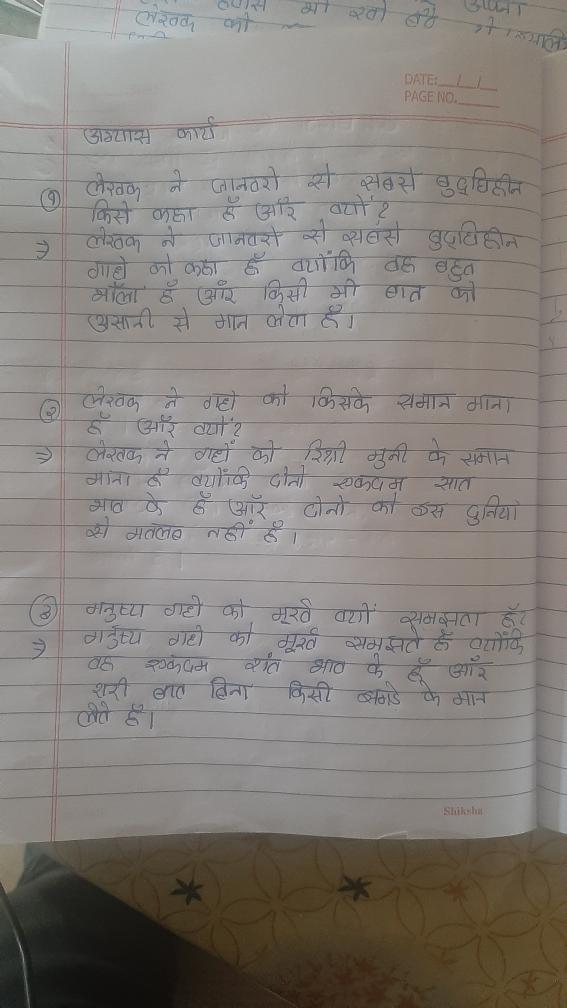 लेखक को
DATE: __/__/__
PAGE NO.
अभ्यास कार्य
(१) लेखक ने जानवरो से सबसे बुद्धिहीन
किसे कहा हैं और क्यों?
⇒ लेखक ने जानवरो से सबसे बुद्धिहीन
गाहो को कहा हैं क्योंकि वह बहुत
भोला हैं और किसी भी बात को
असानी से मान लेता हैं।
(२) लेखक ने गहो को किसके समान माना
हैं और क्यों?
⇒ लेखक ने गहों को रिश्री मुनी के समान
माना हैं क्योंकि दोनो एकदम सात
भाव के हैं और दोनो को इस दुनिया
से मतलब नहीं हैं।
(३) मनुष्य गहो को मूर्ख क्यों समझता हैं?
⇒ मनुष्य गहो को मूर्ख समझते हैं क्योंकि
वह एकदम शांत भाव के हैं और
शरी बात बिना किसी झगडे के मान
लेते हैं।
Shiksha